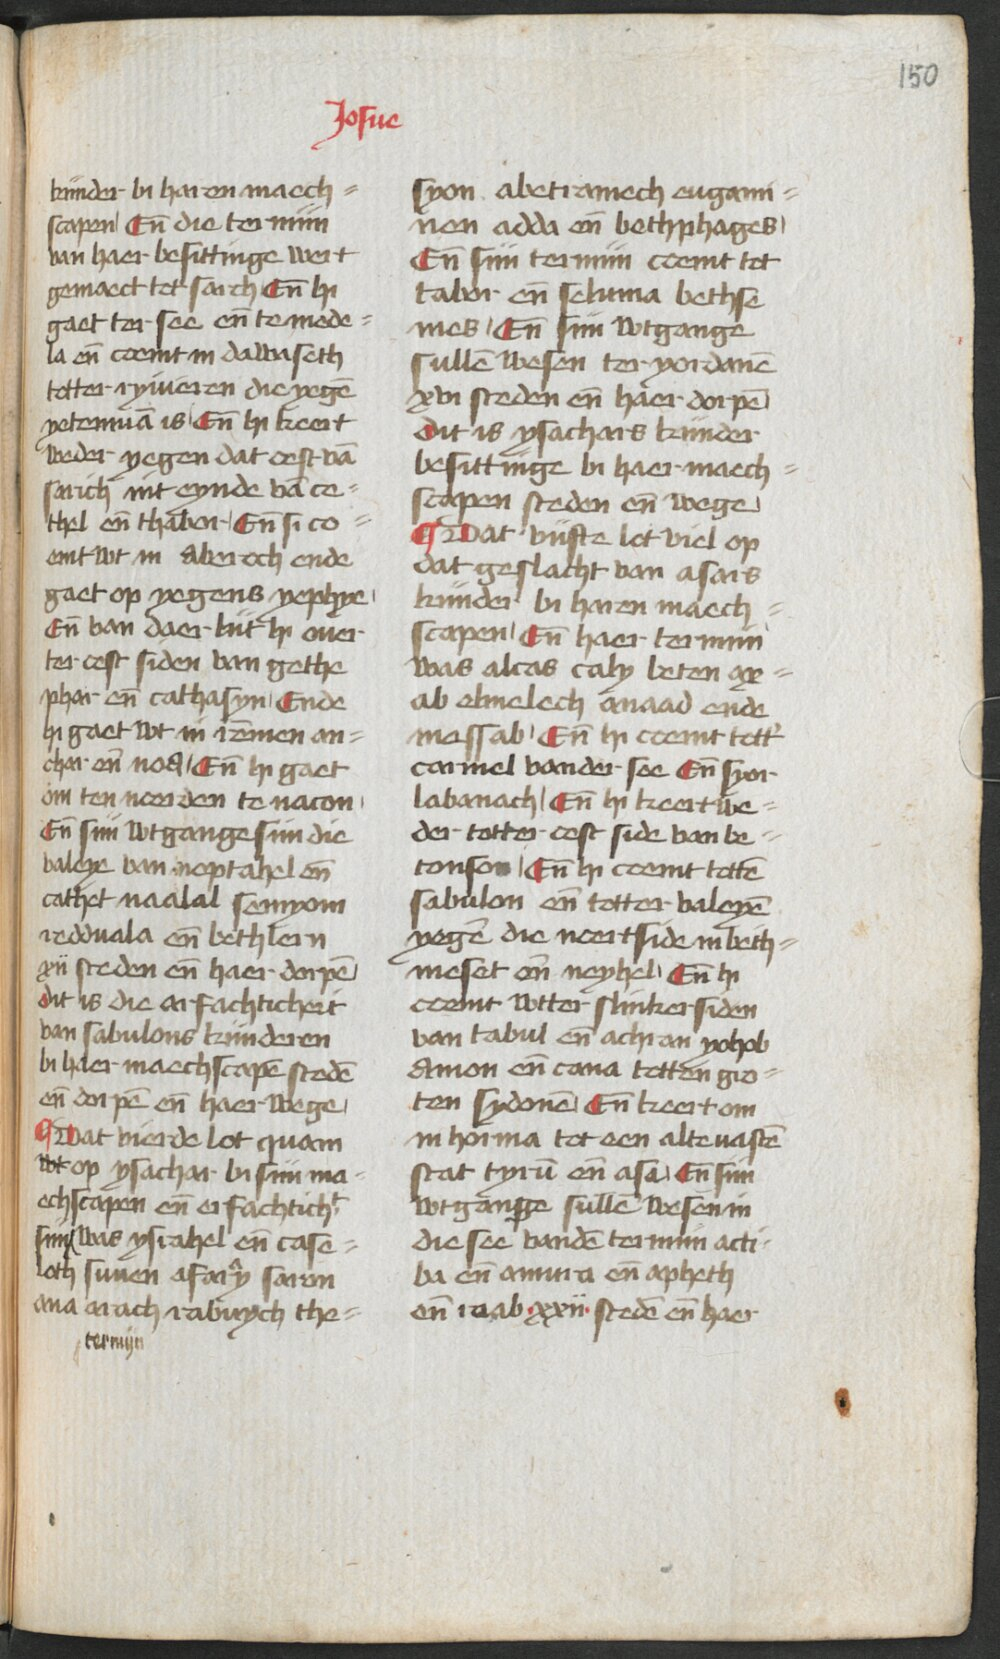 150
Josue
kijnder bi haren maech=
scapen Eñ die termijn
van haer besittinge wert
gemaect tot sarch Eñ hi
gaet ter see eñ te mede=
la eñ coemt in dawaseth
totter ryvieren die yegē
yetemuā is Eñ hi keert
weder yegen dat oest vā
sarich uit eynde vā ce=
thel eñ thabor Eñ si co=
emt wt in Aberoch ende
gaet op yegens yephye
Eñ van daer lijt hi over
ter oest siden van gethe
pher eñ cathasyn Ende
hi gaet wt in rēmen an=
char eñ noa Eñ hi gaet
om ten noerden te nacon
Eñ sijn wtgange sijn die
valeye van neptahel eñ
cathet naalal semyom
redduala eñ bethleem
xij steden eñ haer dorpē
dit is die erfachticheit
van sabulons kijnderen
bi haer maechscapē stedē
eñ dorpē eñ haer wege
Dat vierde lot quam
wt op ysachar bi sijn ma=
echscapen eñ erfachticht
sijn was ysrahel eñ case=
loth suuen afary saron
ana arach rabuych the=
termijn
syon abetramech eugann=
nen adda eñ bethphages
Eñ sijn termijn coemt tot
tabor eñ sehima bethse
mes Eñ sijn wtgange
sullē wesen ter yordanē
xvi steden eñ haer dorpē
Dit is ysachars kijnder
besittinge bi haer maech=
scapen steden eñ wege
Dat vijfte lot viel op
dat geslacht van asars
kijnder bi haren maech=
scapen Eñ haer termijn
was alcas caly beten ax=
ab elmelech anaad ende
messab Eñ hi coemt tott
carmel vander see Eñ syor
labanach Eñ hi keert we=
der totter oest side van be=
tonson Eñ hi coemt totē
sabulon eñ totter valeyē
yegē die noertside in beth=
meset eñ neyhel Eñ hi
coemt wtter slinker siden
van tabul eñ achran yohob
Amon eñ cana totten gro=
ten sydonē Eñ keert om
in horma tot een alte vastē
stat tyrū eñ asa Eñ sijn
wtgange sullē wesen in
die see vandē termijn acti=
ba eñ amura eñ apheth
eñ raab xxij stedē eñ haer